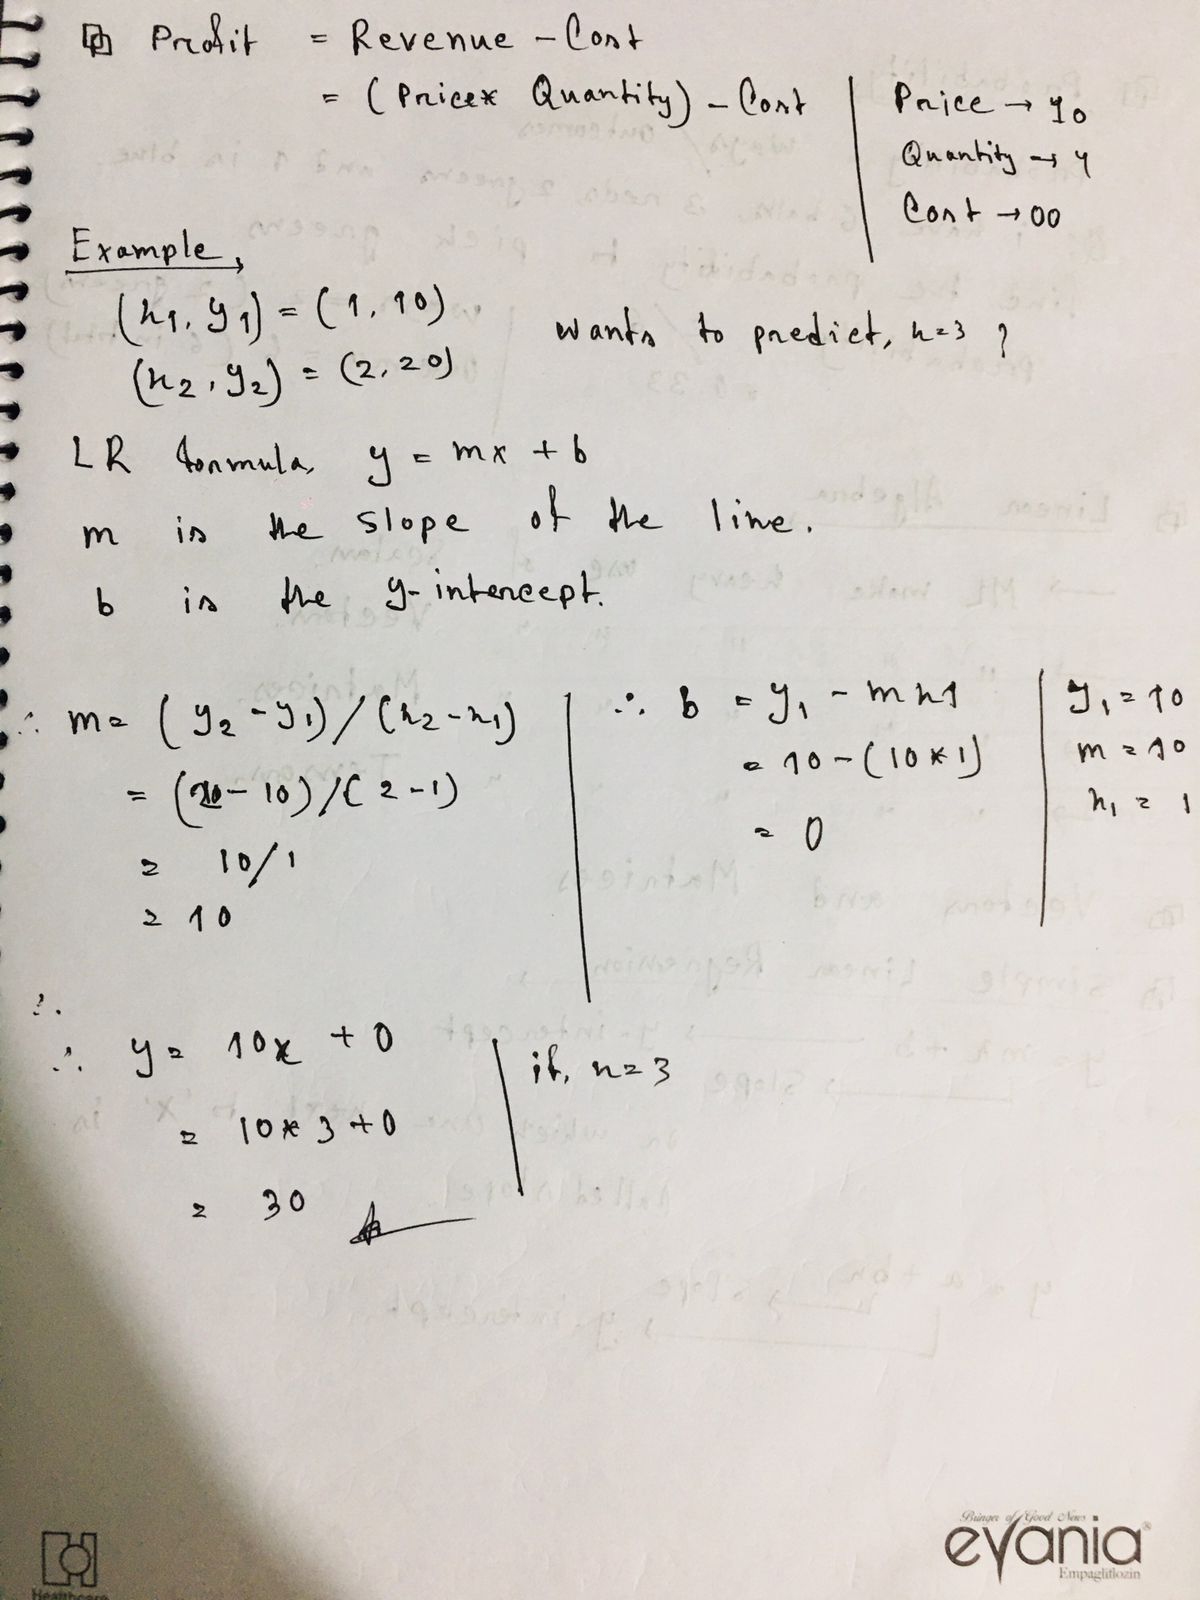 Profit = Revenue - Cost
= (Price* Quantity) - Cost
Price → 10
Quantity → 4
Cost → 00
Example,
(x1, y1) = (1, 10)
(x2, y2) = (2, 20)
wants to predict, x=3 ?
LR formula, y = mx + b
m is the slope of the line.
b is the y-intercept.
∴ m = (y2 - y1) / (x2 - x1)
= (20 - 10) / (2 - 1)
= 10/1
= 10
∴ b = y1 - mx1
= 10 - (10 * 1)
= 0
y1 = 10
m = 10
x1 = 1
∴ y = 10x + 0
= 10 * 3 + 0
= 30
if, x = 3
Bringer of Good News
evania®
Empagliflozin
Healthcare